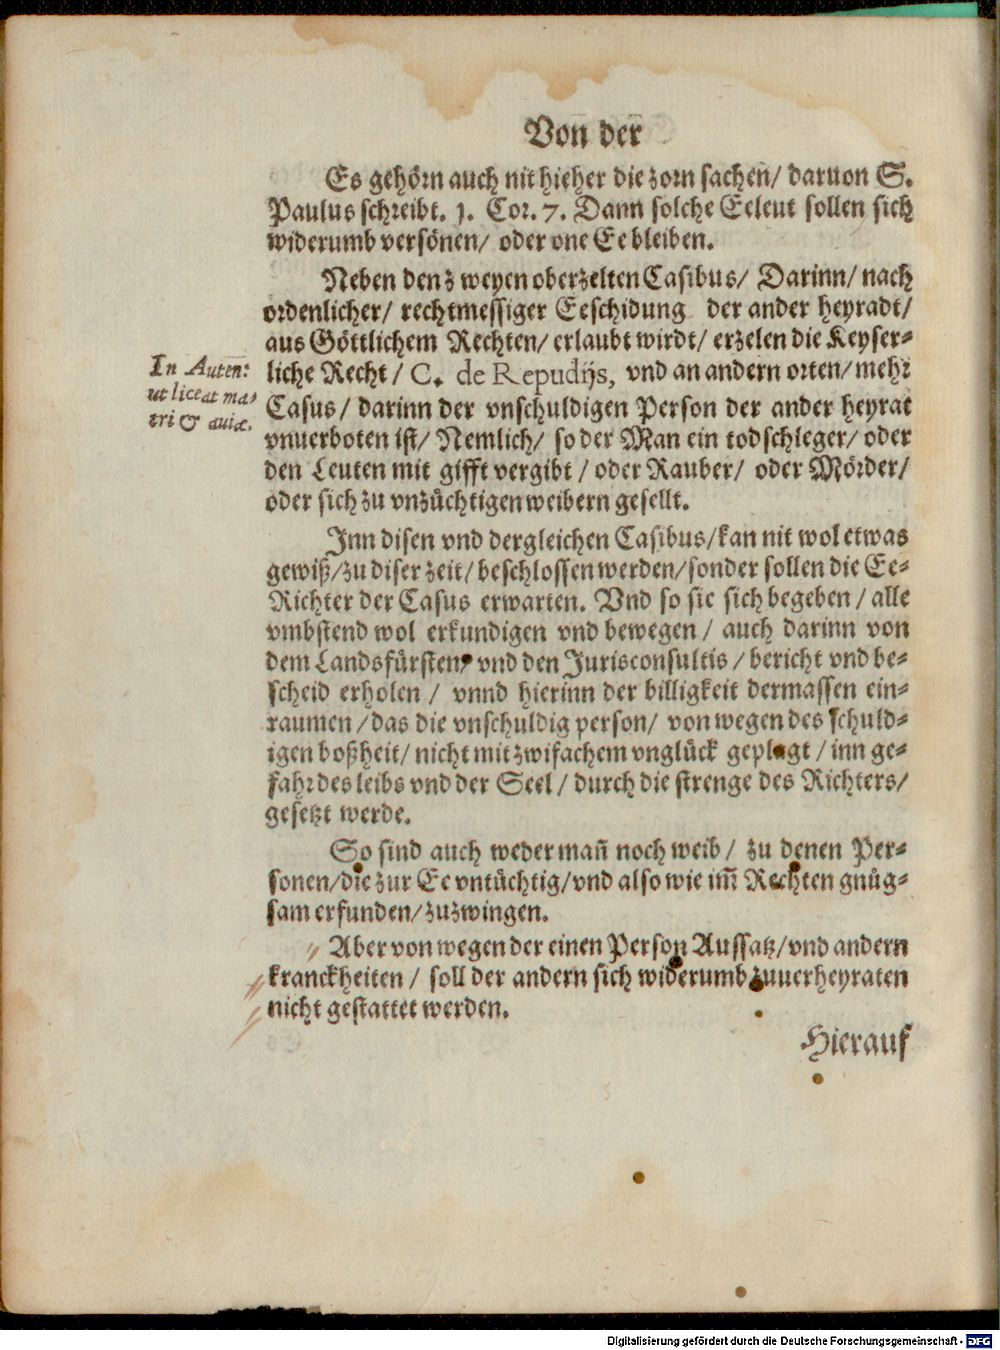 Von der
Es gehörn auch nit hieher die zorn sachen/ daruon S.
Paulus schreibt. 1. Cor. 7. Dann solche Eeleut sollen sich
widerumb versönen/ oder one Ee bleiben.
Neben den zweyen oberzelten Casibus/ Darinn/ nach
ordenlicher/ rechtmessiger Eeschidung der ander heyradt/
aus Göttlichem Rechten/ erlaubt wirdt/ erzelen die Keyser-
liche Recht/ C. de Repudijs, vnd an andern orten/ mehr
In Auten:
ut liceat ma-
tri & auiæ.
Casus/ darinn der vnschuldigen Person der ander heyrat
vnuerboten ist/ Nemlich/ so der Man ein todschleger/ oder
den Leuten mit gifft vergibt/ oder Rauber/ oder Mörder/
oder sich zu vnzüchtigen weibern gesellt.
Inn disen vnd dergleichen Casibus/ kan nit wol etwas
gewiß/ zu diser zeit/ beschlossen werden/ sonder sollen die Ee-
Richter der Casus erwarten. Vnd so sie sich begeben/ alle
vmbstend wol erkundigen vnd bewegen/ auch darinn von
dem Landsfürsten, vnd den Jurisconsultis/ bericht vnd be-
scheid erholen/ vnnd hierinn der billigkeit dermassen ein-
raumen/ das die vnschuldig person/ von wegen des schuld-
igen boßheit/ nicht mit zwifachem vnglück geplagt/ inn ge-
fahr des leibs vnd der Seel/ durch die strenge des Richters/
gesetzt werde.
So sind auch weder mañ noch weib/ zu denen Per-
sonen/ die zur Ee vntüchtig/ vnd also wie im̃ Rechten gnüg-
sam erfunden/ zuzwingen.
Aber von wegen der einen Person Aussatz/ vnd andern
kranckheiten/ soll der andern sich widerumb zuuerheyraten
nicht gestattet werden.
Hierauf
Digitalisierung gefördert durch die Deutsche Forschungsgemeinschaft - DFG